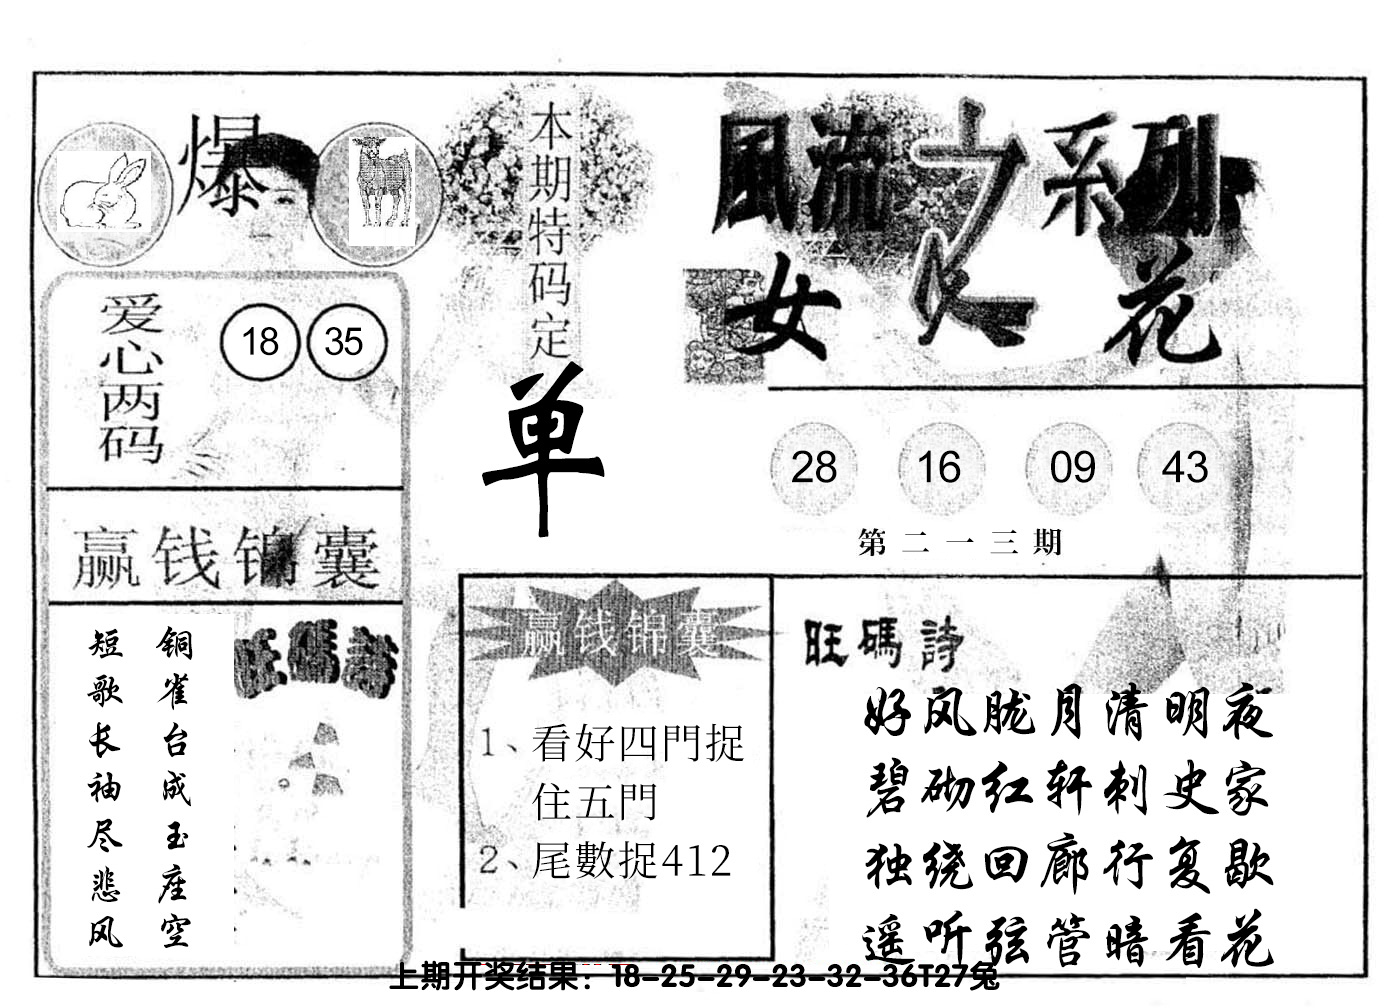 爆
爱心两码
18 35
赢钱锦囊
铜雀台成玉座空
短歌长袖尽悲风
旺碼詩
本期特码定
单
風流之系列
女人花
28 16 09 43
第二一三期
赢钱锦囊
1、看好四門捉
住五門
2、尾數捉412
旺碼詩
好风胧月清明夜
碧砌红轩刺史家
独绕回廊行复歇
遥听弦管暗看花
上期开奖结果：18-25-29-23-32-36T27兔